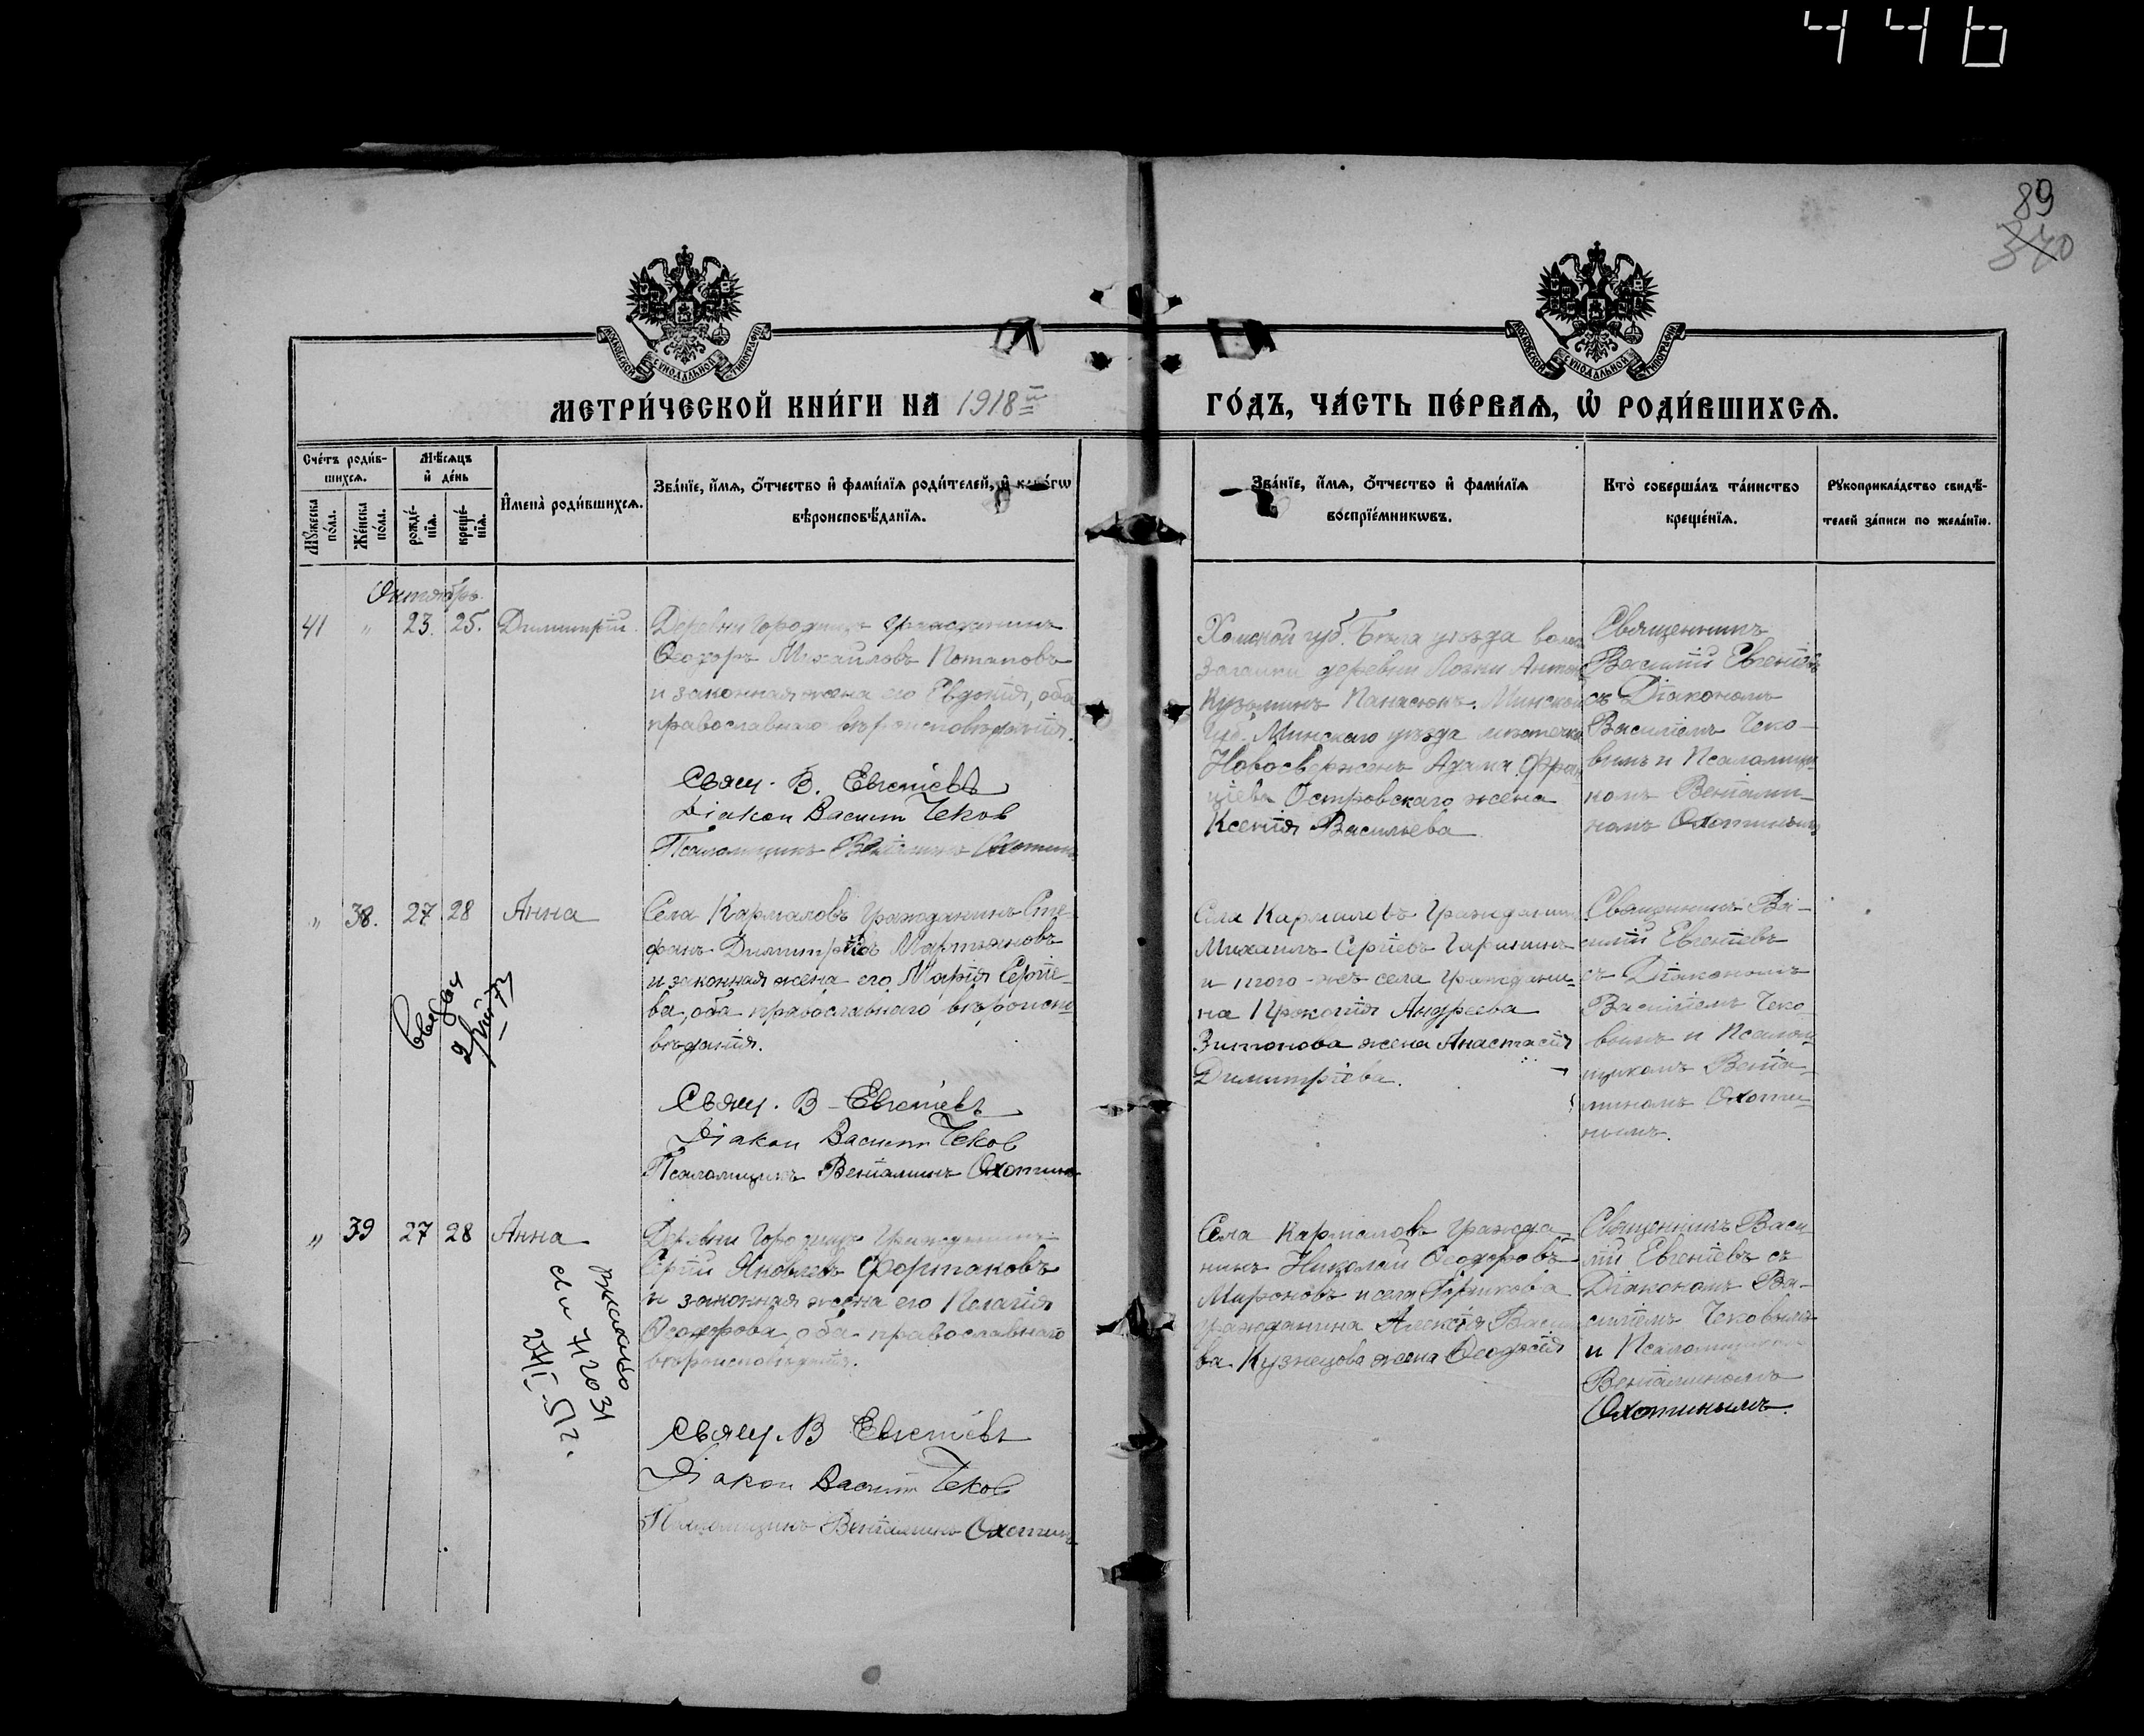 446
89
370
МОСКОВСКОЙ СУНОДАЛЬНОЙ ТИПОГРАФІИ
МОСКОВСКОЙ СУНОДАЛЬНОЙ ТИПОГРАФІИ
МЕТРИ́ЧЕСКОЙ КНИ́ГИ НА 1918й
ГО́ДЪ, ЧА́СТЬ ПЕ́РВАѦ, Ѡ҆ РОДИ́ВШИХСѦ.
Сче́тъ роди́в-
шихсѧ.
Мѣ́сѧцъ
и҆ де́нь
Мꙋ́жеска по́ла.
Же́нска по́ла.
рожде́-
нїѧ.
креще́-
нїѧ.
И҆мена̀ роди́вшихсѧ.
Зва́нїе, и҆́мѧ, ѻ҆́тчество и҆ фами́лїѧ роди́телей, и҆ како́гѡ
вѣроисповѣ́данїѧ.
Зва́нїе, и҆́мѧ, ѻ҆́тчество и҆ фами́лїѧ
воспрїе́мникѡвъ.
Кто̀ соверша́лъ та́инство
креще́нїѧ.
Рꙋкоприкла́дство свидѣ́-
телей за́писи по жела́нїю.
Октябрь.
41 " 23. 25. Димитрій.
Деревни Городищъ гражданинъ
Ѳеодоръ Михайловъ Потаповъ
и законная жена его Евдокія, оба
православнаго вѣроисповѣданія.
Свящ. В. Евгеніевъ
Діакон Василій Чеков
Псаломщикъ Веніаминъ Охотинъ
Холмской губ. Бѣла уѣзда
деревни
Кузьминъ Панасюкъ. Минской
губ. Минскаго уѣзда мѣстечка
Новосвержень Адама
Островскаго жена
Ксенія Васильева
Священникъ
Василій Евгеніевъ
съ Діакономъ
Василіемъ Чеко-
вымъ и Псаломщи-
комъ Веніами-
номъ Охотинымъ
" 38. 27 28 Анна
Села Кармаловъ Гражданинъ Сте-
фанъ Димитріевъ Мартьяновъ
и законная жена его Марія Сергіе-
ва, оба православнаго вѣроиспо-
вѣданія.
Свящ. В. Евгеніевъ
Діакон Василій Чеков
Псаломщикъ Веніаминъ Охотинъ
Села Кармаловъ Гражданинъ
Михаилъ Сергіевъ
и того-же села Граждани-
на Прокопія Андреева
жена Анастасія
Димитріева.
Священникъ Ва-
силій Евгеніевъ
съ Діакономъ
Василіемъ Чеко-
вымъ и Псалом-
щикомъ Веніа-
миномъ Охоти-
нымъ.
" 39 27 28 Анна
Деревни Городищъ Гражданинъ
Сергій Яковлевъ Фортаковъ
и законная жена его Пелагія
Ѳеодорова, оба православнаго
вѣроисповѣданія.
Свящ. В Евгеніевъ
Діакон Василій Чеков
Псаломщикъ Веніаминъ Охотинъ
Села Кармаловъ Гражда-
нинъ Николай Ѳеодоровъ
Мироновъ и села
гражданина Алексія Василье-
ва Кузнецова жена Ѳеодосія
Священникъ Васи-
лій Евгеніевъ съ
Діакономъ Ва-
силіемъ Чековымъ
и Псаломщикомъ
Веніаминомъ
Охотинымъ.